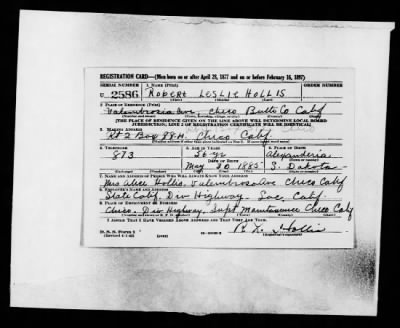 REGISTRATION CARD—(Men born on or after April 28, 1877 and on or before February 16, 1897)
SERIAL NUMBER 1. NAME (Print) ORDER NUMBER
U 2586 ROBERT LESLIE HOLLIS
(First) (Middle) (Last)
2. PLACE OF RESIDENCE (Print)
Valombrosia Ave, Chico Butte Co Calif
[THE PLACE OF RESIDENCE GIVEN ON THE LINE ABOVE WILL DETERMINE LOCAL BOARD
JURISDICTION; LINE 2 OF REGISTRATION CERTIFICATE WILL BE IDENTICAL]
3. MAILING ADDRESS
Rt 2 Box 88H. Chico Calif.
4. TELEPHONE 5. AGE IN YEARS 6. PLACE OF BIRTH
873 56 yr Alexanderia
DATE OF BIRTH
May 20 1885 S. Dakota
7. NAME AND ADDRESS OF PERSON WHO WILL ALWAYS KNOW YOUR ADDRESS
Mrs Alice Hollis, Valembrosa Ave Chico Calif
8. EMPLOYER'S NAME AND ADDRESS
State Calif. Div Highway. Sac, Calif.
9. PLACE OF EMPLOYMENT OR BUSINESS
Chico, Div Highway, Supt Maintainence Chico Calif
I AFFIRM THAT I HAVE VERIFIED ABOVE ANSWERS AND THAT THEY ARE TRUE.
D. S. S. Form 1
R. L. Hollis